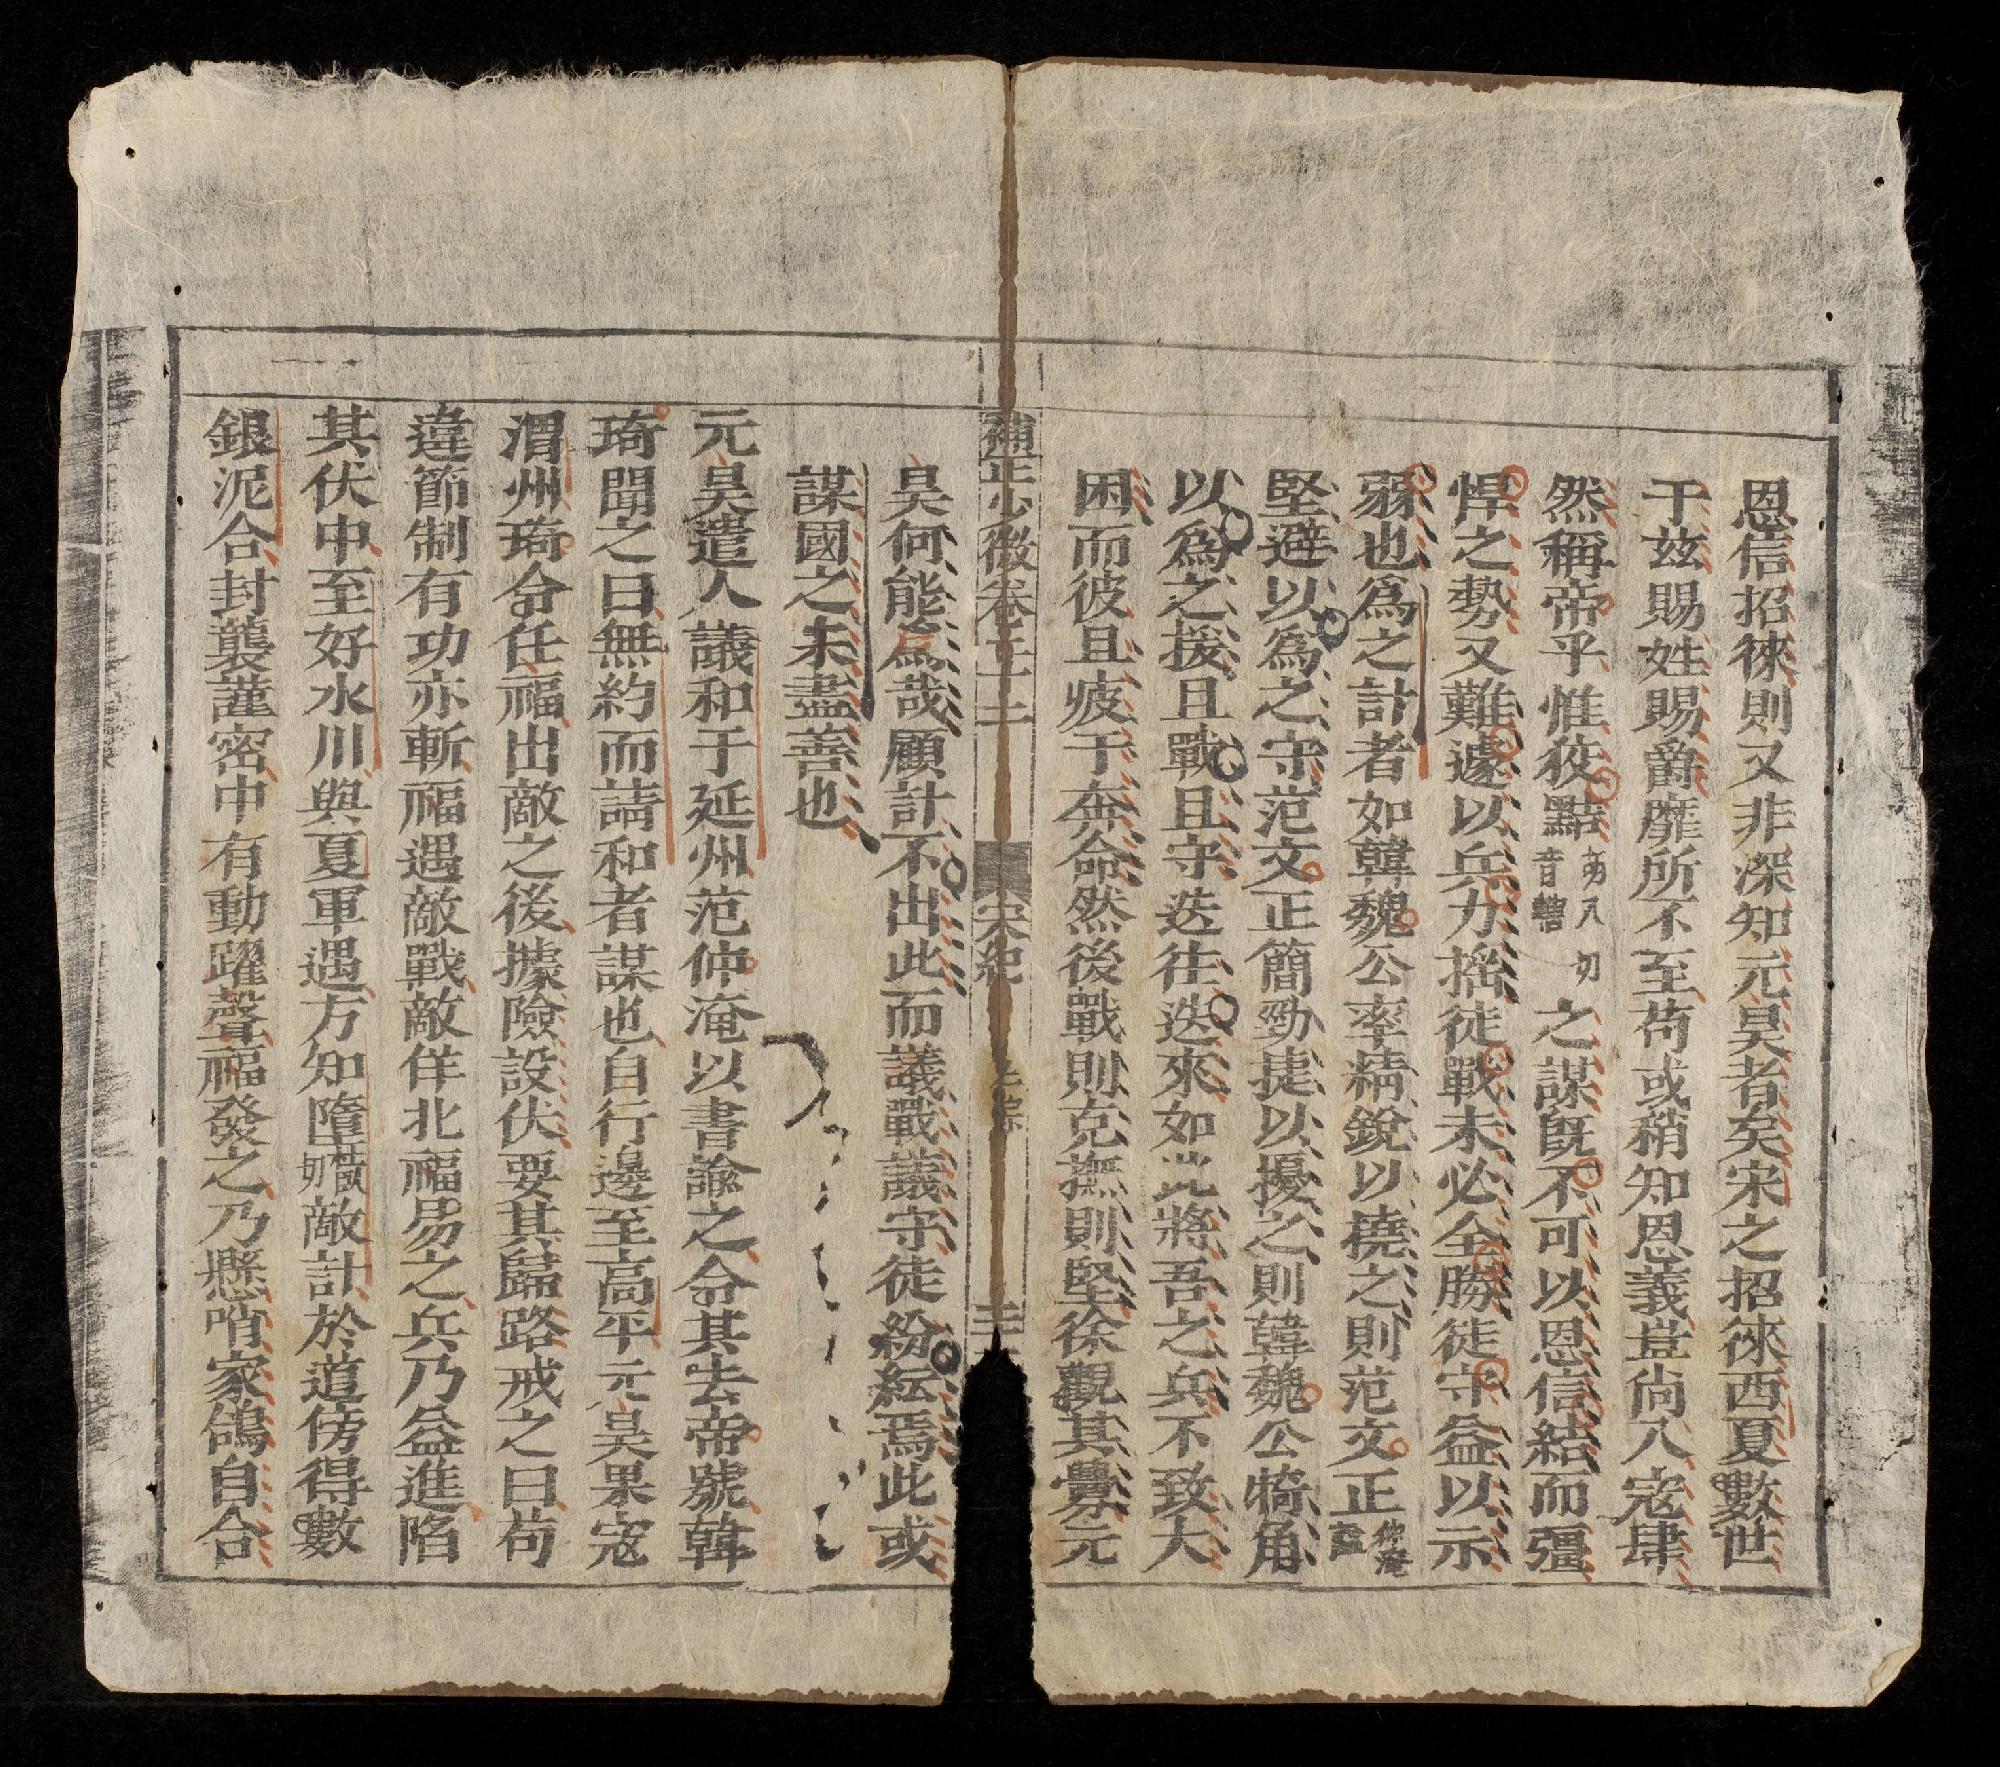 恩信招徠則又非深知元昊者矣宋之招徠西夏數世
于茲賜姓賜爵靡所不至苟或稍知恩義豈尚入寇肆
然稱帝乎惟狡黠音轄之謀旣不可以恩信結而彊
悍之勢又難遽以兵力搖徒戰未必全勝徒守益以示
弱也爲之計者如韓魏公率精銳以撓之則范文正仲淹
堅避以爲之守范文正簡勁捷以擾之則韓魏公犄角
以爲之援且戰且守迭往迭來如此將吾之兵不致大
困而彼且疲于奔命然後戰則克撫則堅徐觀其釁元
補正少微卷二十二 宋紀
昊何能爲哉顧計不出此而議戰議守徒紛紜焉此或
謀國之未盡善也
元昊遣人議和于延州范仲淹以書諭之令其去帝號韓
琦聞之曰無約而請和者謀也自行邊至高平元昊果寇
渭州琦令任福出敵之後據險設伏要其歸路戒之曰苟
違節制有功亦斬福遇敵戰敵佯北福易之兵乃益進陷
其伏中至好水川與夏軍遇方知墮敵計於道傍得數
銀泥合封襲謹密中有動躍聲福發之乃懸哨家鴿自合